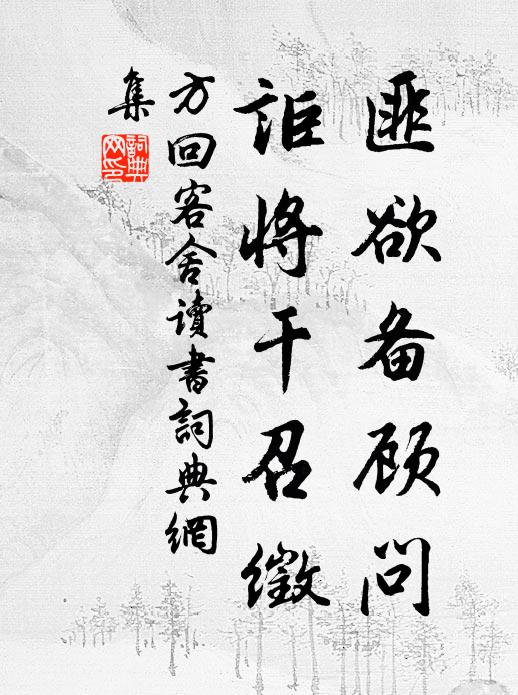 匪欲备顾问
讵将干召徵
方回客舍读书词典网
集
词典网印